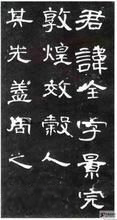 君諱全字景完
敦煌效穀人
其先蓋周之